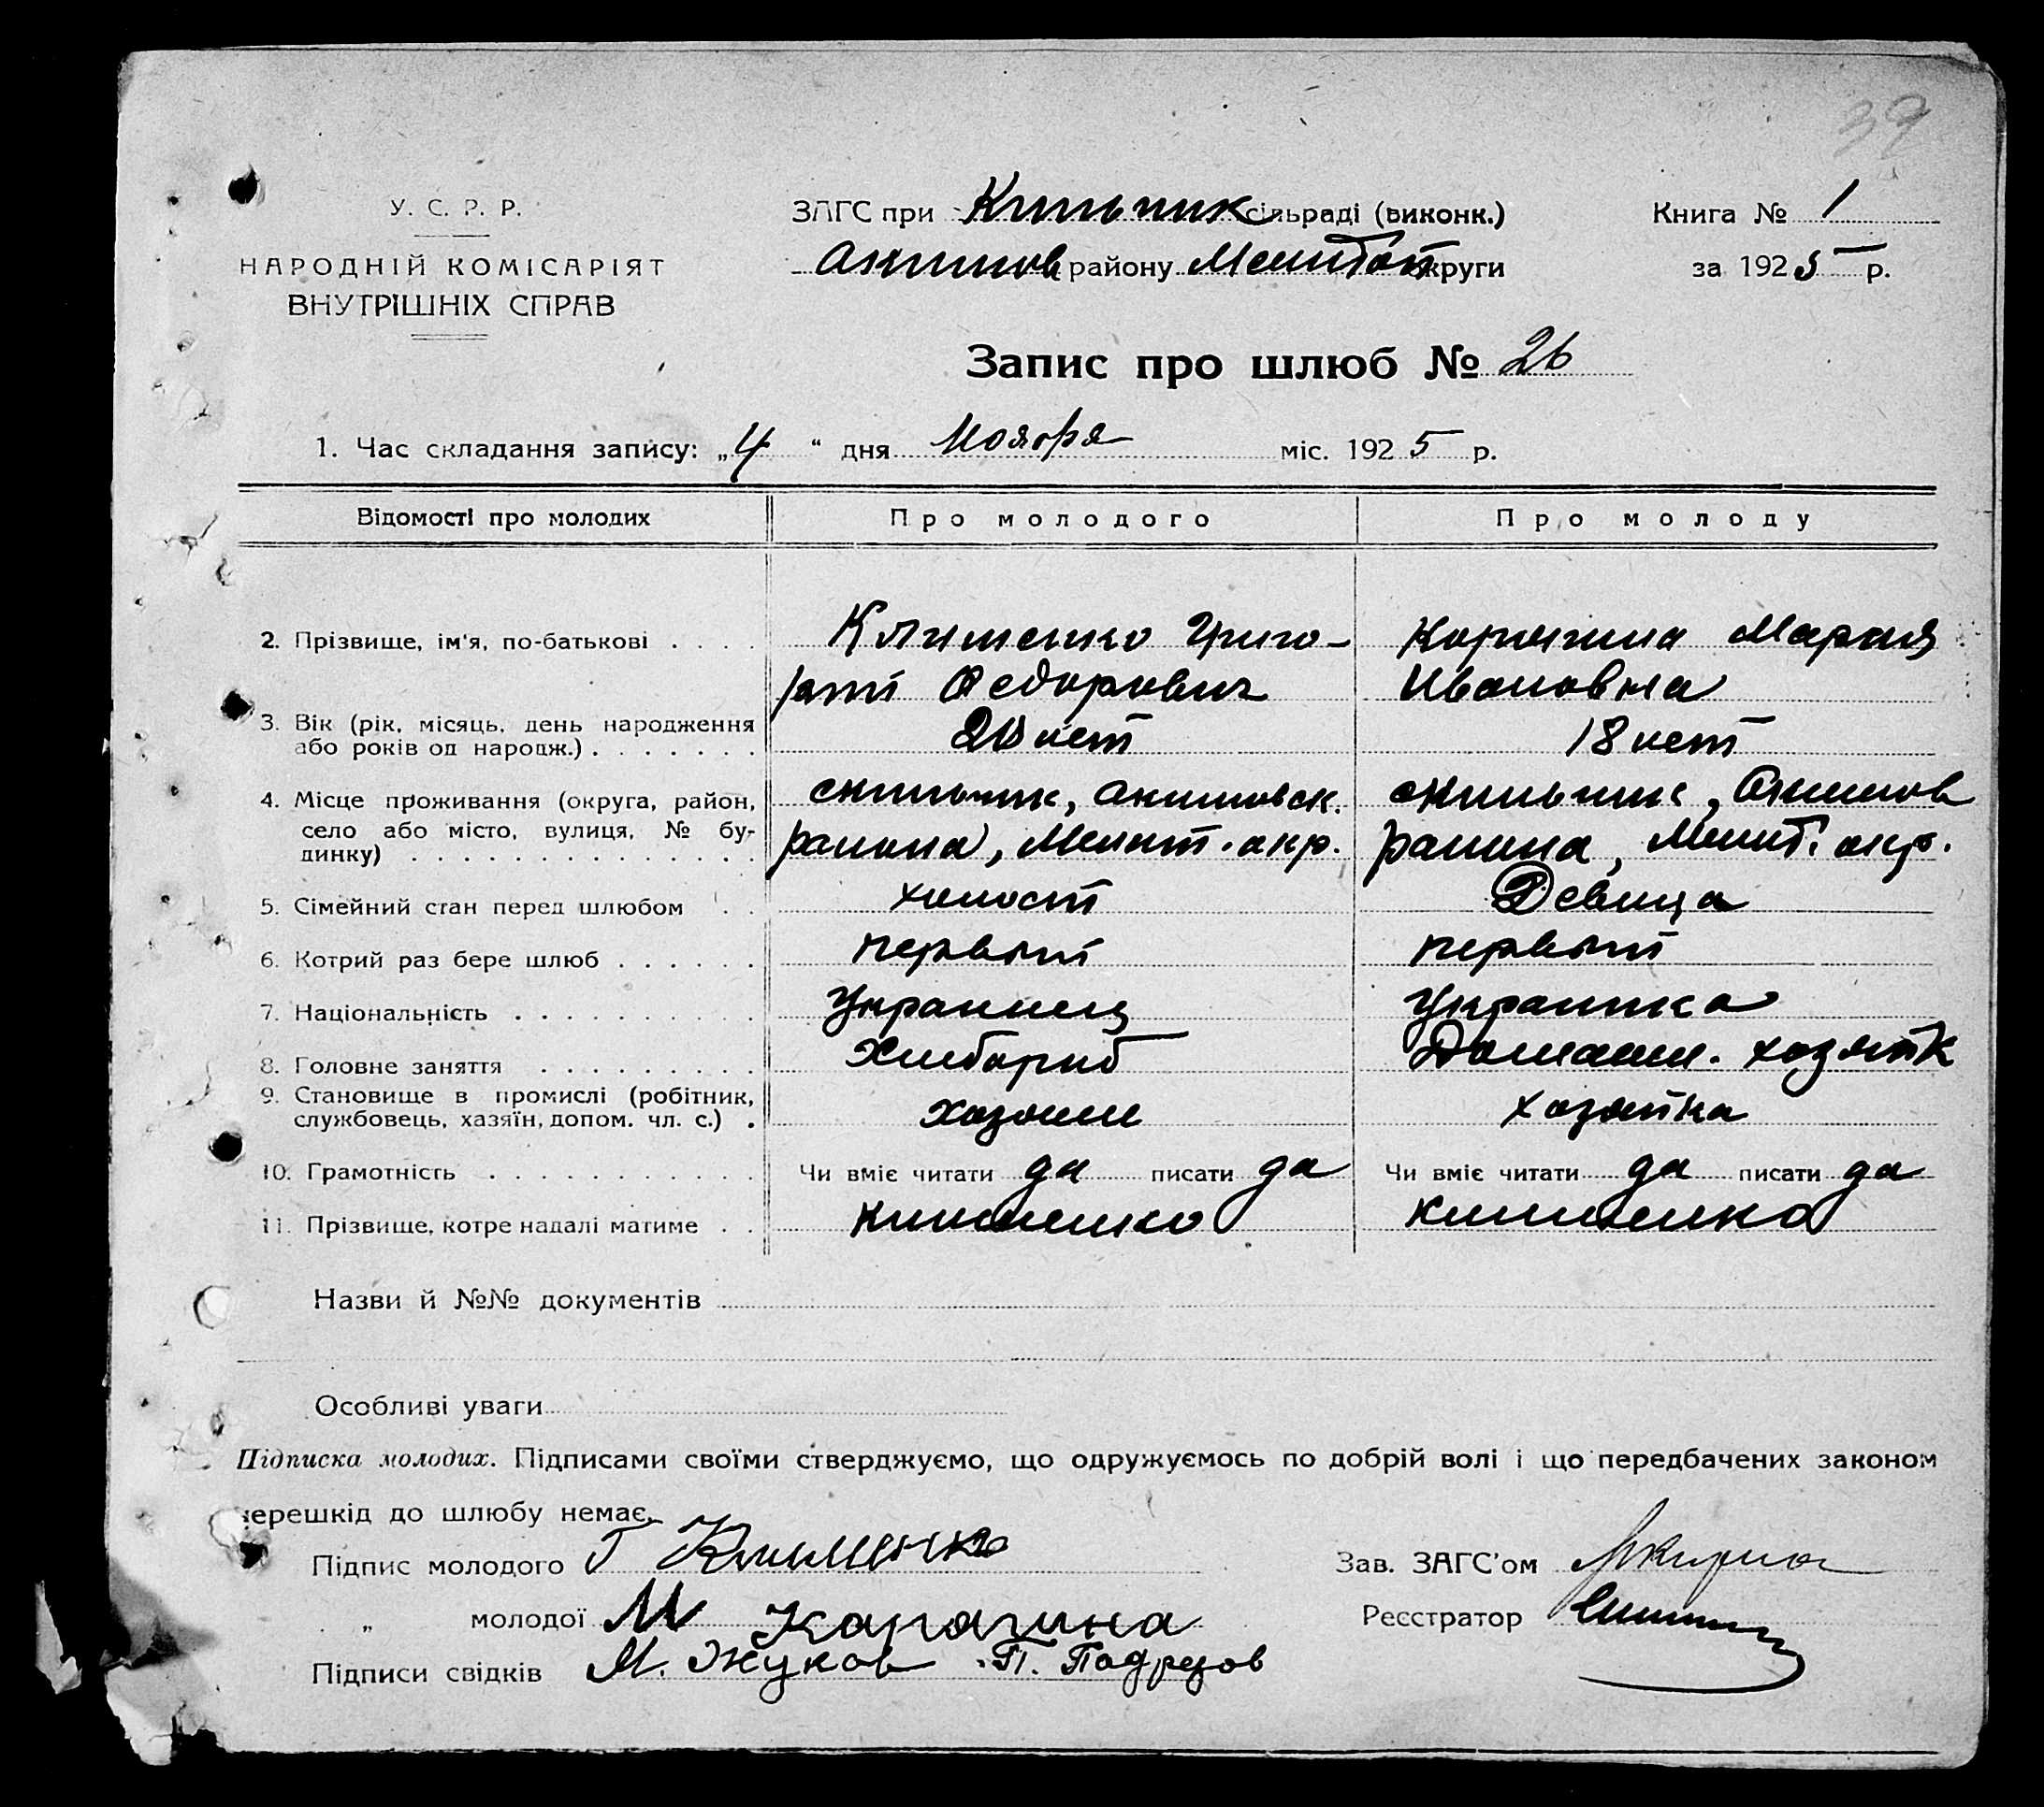 39
У. С. Р. Р.
НАРОДНІЙ КОМІСАРІЯТ
ВНУТРІШНІХ СПРАВ
ЗАГС при Кильчик сільраді (виконк.)
Акимов району Мелитоп округи
Книга № 1
за 1925 р.
Запис про шлюб № 26
1. Час складання запису: „4 “ дня Ноября міс. 1925 р.
Відомості про молодих Про молодого Про молоду
2. Прізвище, ім'я, по-батькові . . . . Клименко Григо- Корягина Мария
рий Федорович Ивановна
3. Вік (рік, місяць, день народження
або років од нароdж.) . . . . . . . 20 лет 18 лет
4. Місце проживання (округа, район, с Кильчик, Акимовск. с Кильчик, Акимов
село або місто, вулиця, № бу-
динку) . . . . . . . . . . . . . . района, Мелит. окр. района, Мелит. окр.
5. Сімейний стан перед шлюбом . . холост Девица
6. Котрий раз бере шлюб . . . . . . первый первый
7. Національність . . . . . . . . . . Украинец Украинка
8. Головне заняття . . . . . . . . . Хлебороб Домашн. хозяйк
9. Становище в промислі (робітник,
службовець, хазяїн, допом. чл. с.) . хозяин хозяйка
10. Грамотність . . . . . . . . . . . Чи вміє читати да писати да Чи вміє читати да писати да
11. Прізвище, котре надалі матиме . . Клименко Клименко
Назви й №№ документів
Особливі уваги
Підписка молодих. Підписами своїми стверджуємо, що одружуємось по добрій волі і що передбачених законом
перешкід до шлюбу немає.
Підпис молодого Г Клименко
Зав. ЗАГС'ом
„ молодої М Карагина
Реєстратор
Підписи свідків М. Жуков П. Подрезов